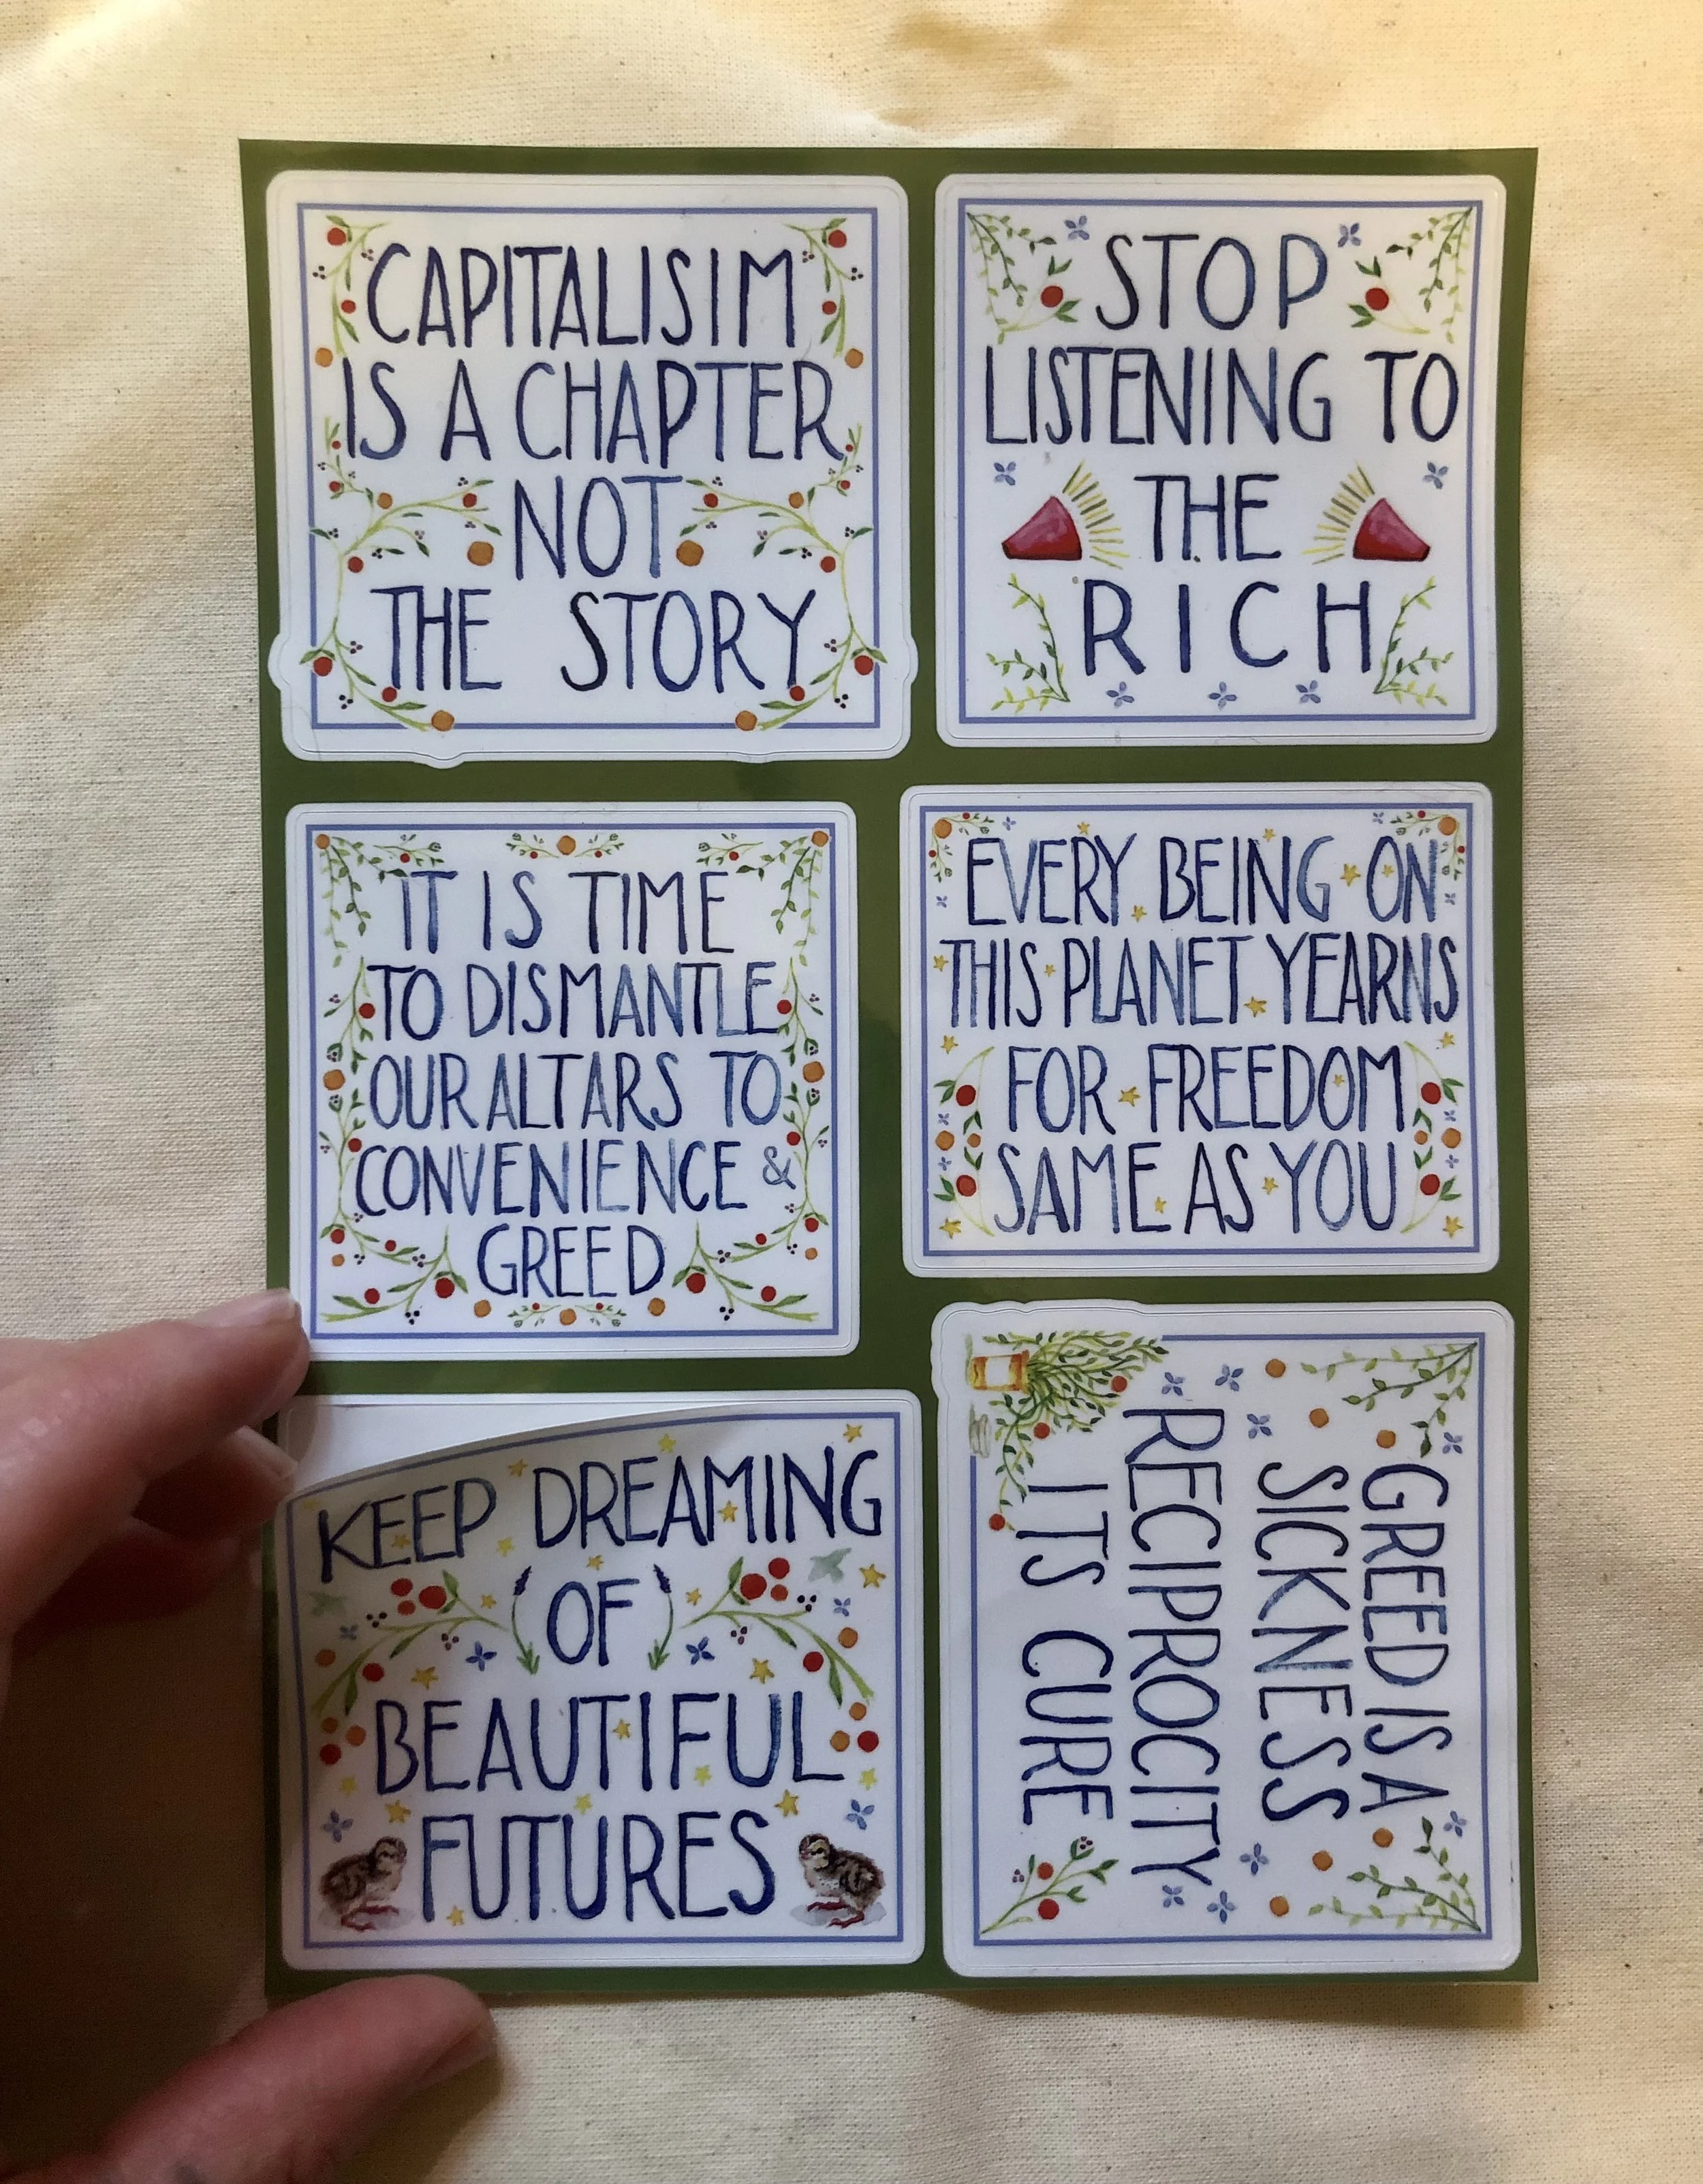 CAPITALISIM
IS A CHAPTER
NOT
THE STORY
STOP
LISTENING TO
THE
RICH
IT IS TIME
TO DISMANTLE
OUR ALTARS TO
CONVENIENCE &
GREED
EVERY BEING ON
THIS PLANET YEARNS
FOR FREEDOM
SAME AS YOU
KEEP DREAMING
OF
BEAUTIFUL
FUTURES
GREED IS A
SICKNESS
RECIPROCITY
ITS CURE